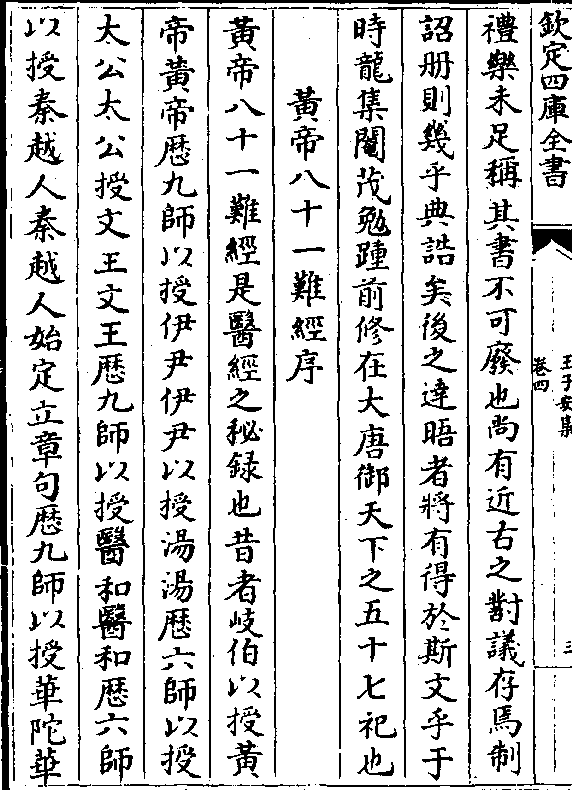 欽定四庫全書
王子安集
卷四
三
禮樂未足稱其書不可廢也尚有近右之對議存焉制
詔册則幾乎典誥矣後之達晤者將有得於斯文乎于
時龍集閹茂勉踵前修在大唐御天下之五十七祀也
黄帝八十一難經序
黄帝八十一難經是醫經之秘録也昔者岐伯以授黄
帝黄帝歴九師以授伊尹伊尹以授湯湯歴六師以授
太公太公授文王文王歴九師以授醫和醫和歴六師
以授秦越人秦越人始定立章句歴九師以授華陀華